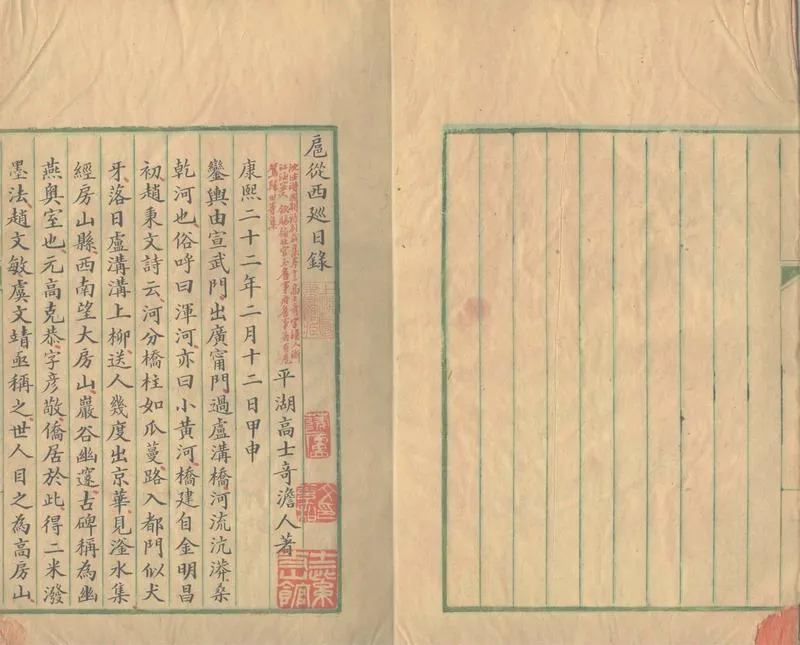 扈從西巡日錄
平湖高士奇澹人著
康熙二十二年二月十二日甲申
鑾輿由宣武門出廣甯門過盧溝橋河流沆漭桑
乾河也俗呼曰渾河亦曰小黃河橋建自金明昌
初趙秉文詩云河分橋柱如瓜蔓路入都門似犬
牙落日盧溝溝上柳送人幾度出京華見滏水集
經房山縣西南望大房山巖谷幽邃古碑稱為幽
燕奥室也元高克恭字彦敬僑居於此得二米潑
墨法趙文敏虞文靖亟稱之世人目之為高房山